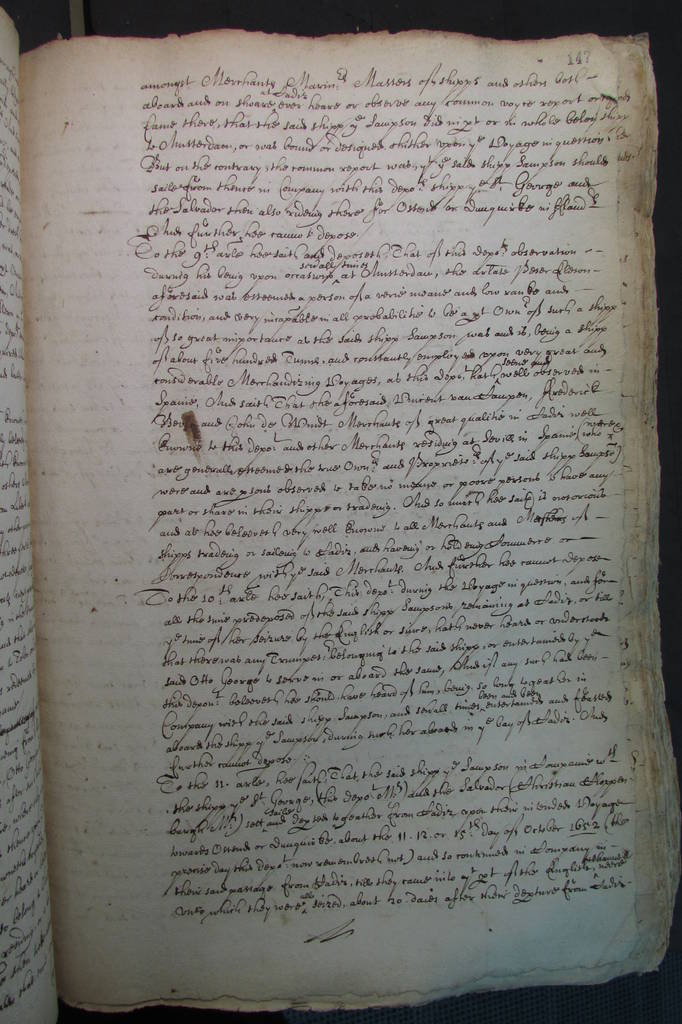 147
amongst Merchants Marin:rs Masters of shipps and others both
aboard and on shoare at Cadiz ever heare or observe any common voyce report or
fame there, that the said shipp ye Sampson did in pt or in whole belong
to Amsterdam, or was bound or designed thither upon ye Voyage in question
But on the contrary, the common report was, yt ye said shipp Sampson should
saile from thence in Company with this depots shipp ye St George and
the Salvador then also rideing there for Ostend or Dunquirke in Fland:rs
And further hee cannot depose.
To the 9th arle hee saith and deposeth, That of this depots observation
during his being upon occasions severall times at Amsterdam, the arlate Peter
aforesaid was esteemed a person of a verie meane and low ranke and
condition, and very incapable in all probabilitie to be a pt Owner of such a shipp
of so great importance as the said shipp Sampson was and is, being a shipp
of about five hundred Tunns, and constantly employed upon very great and
considerable Merchandizing Voyages, as this depot hath seene and well observed in
Spaine, And saith That the aforesaid Vincent van Campen, Frederick
and John de Windt Merchants of great qualitie in Cadiz well
knowne to this depot and other Merchants residing at Sevill in Spaine (who
are generally esteemed the true Owners and Proprietors of ye said shipp Sampson)
were and are psons observed to take no meane or poore persons to have any
part or share in their shipps or tradeing. And so much hee saith is notorious
and as hee beleeveth very well knowne to all Merchants and Masters of
shipps tradeing or saileing to Cadiz, and haveing or holding Commerce or
Correspondence with ye said Merchants. And further hee cannot depose
To the 10th arle hee saith, This depot during the Voyage in question, and for
all the time predeposed of the said shipp Sampsons remaining at Cadiz, or till
ye time of her seizure by the English or since, hath never heard or understood
that there was any Trumpetr belonging to the said shipp, or entertained by ye
said Otto George to serve in or aboard the same, And if any such had been
this depont beleeveth he should have heard of him, being so long togeather in
Company with the said shipp Sampson, and severall times been and been entertained and feasted
aboard the shipp ye Sampson, during such her aboad in ye bay of Cadiz. And
further cannot depose.
To the 11. arle, hee saith, That the said shipp ye Sampson in Companie wth
the shipp ye St George, (this depots Mr) and the Salvador (Christian
Mr) sett saile and depted togeather from Cadiz upon their intended Voyage
towards Ostend or Dunquirke about the 11. 12. or 15th day of October 1652 (the
precise day this depot now remembreth not) and so continued in Company in
their said passage from Cadiz, till they came into ye pt of the English
which they were all seized, about 20 daies after their depture from Cadiz.